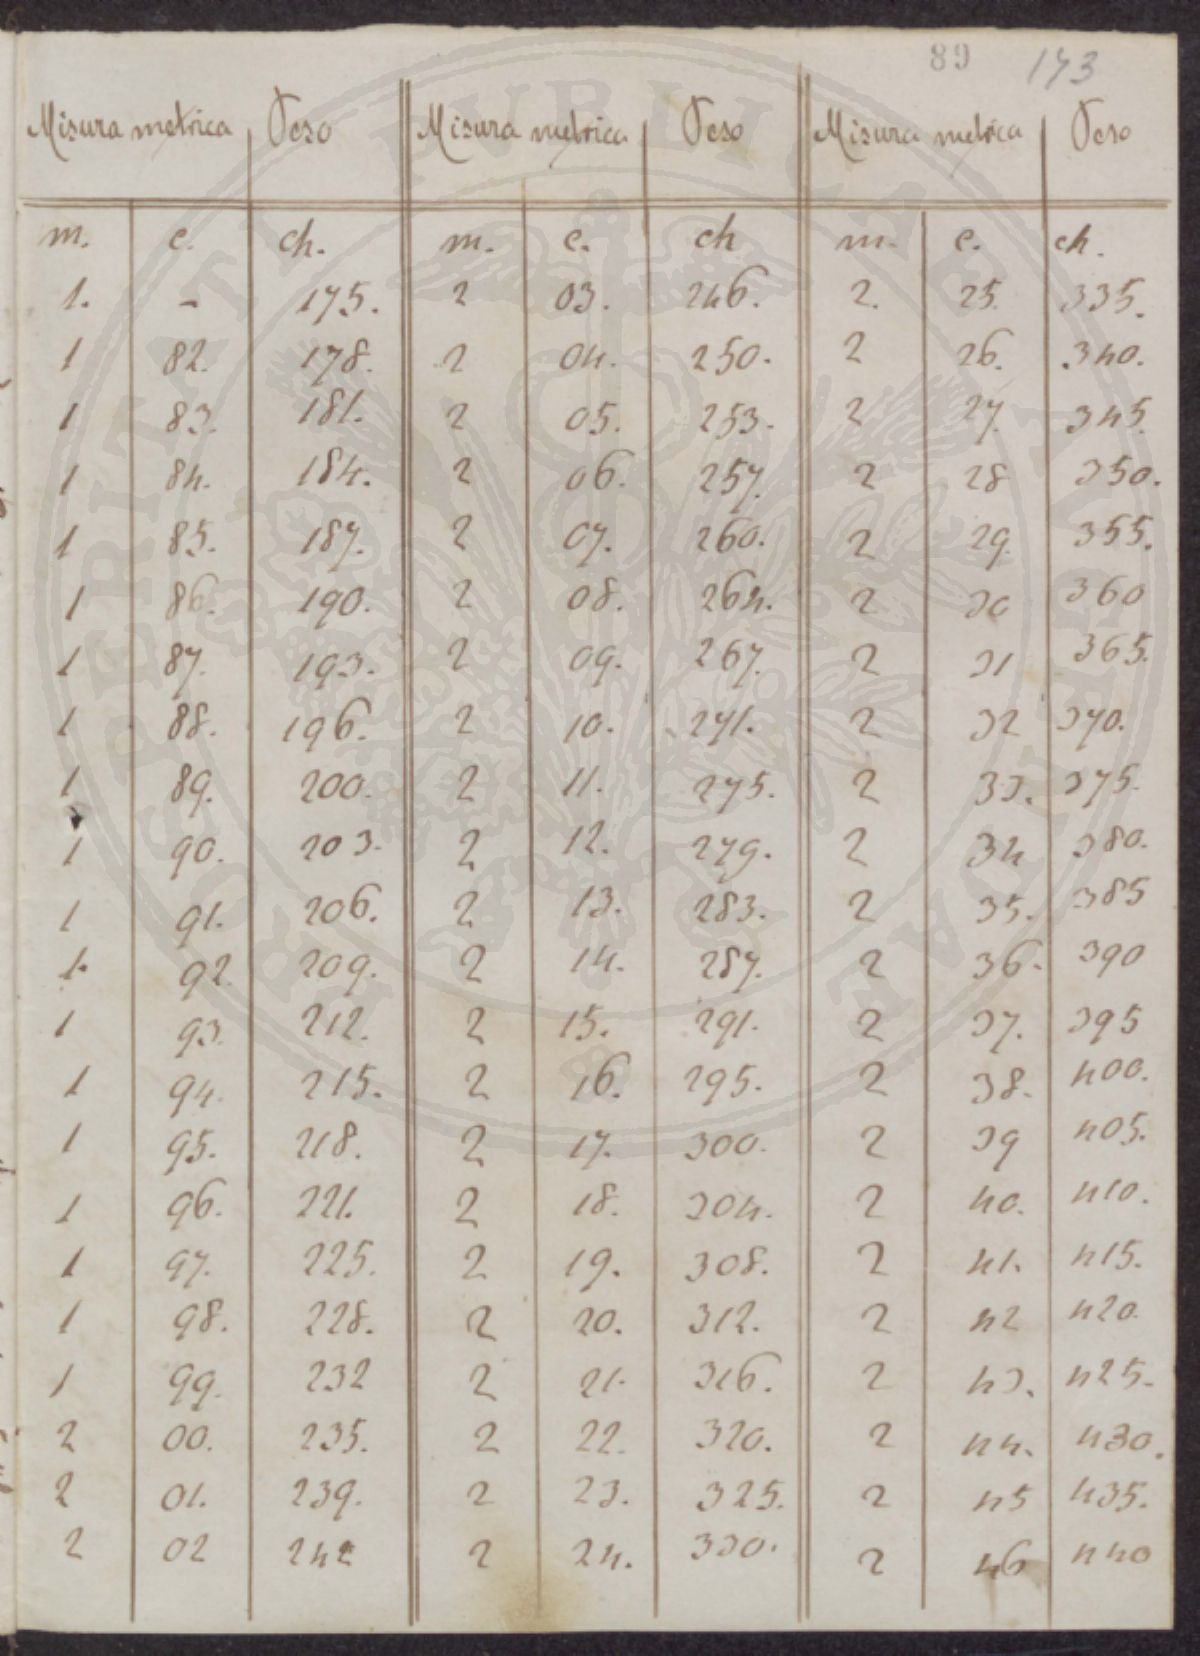 89 143
Misura metrica Peso Misura metrica Peso Misura metrica Peso
m. c. ch. m. c. ch m. c. ch.
1. - 175. 2 03. 246. 2. 25. 335.
1 82. 178. 2 04. 250. 2 26. 340.
1 83. 181. 2 05. 253. 2 27. 345.
1 84. 184. 2 06. 257. 2 28 350.
1 85. 187. 2 07. 260. 2 29. 355.
1 86. 190. 2 08. 264. 2 30 360
1 87. 193. 2 09. 267. 2 31 365.
1 88. 196. 2 10. 271. 2 32 370.
1 89. 200. 2 11. 275. 2 33. 375.
1 90. 203. 2 12. 279. 2 34 380.
1 91. 206. 2 13. 283. 2 35. 385
1. 92. 209. 2 14. 287. 2 36. 390
1 93. 212. 2 15. 291. 2 37. 395
1 94. 215. 2 16. 295. 2 38. 400.
1 95. 218. 2 17. 300. 2 39 405.
1 96. 221. 2 18. 304. 2 40. 410.
1 97. 225. 2 19. 308. 2 41. 415.
1 98. 228. 2 20. 312. 2 42 420.
1 99. 232 2 21. 316. 2 43. 425.
2 00. 235. 2 22. 320. 2 44. 430.
2 01. 239. 2 23. 325. 2 45 435.
2 02 242 2 24. 330. 2 46 440